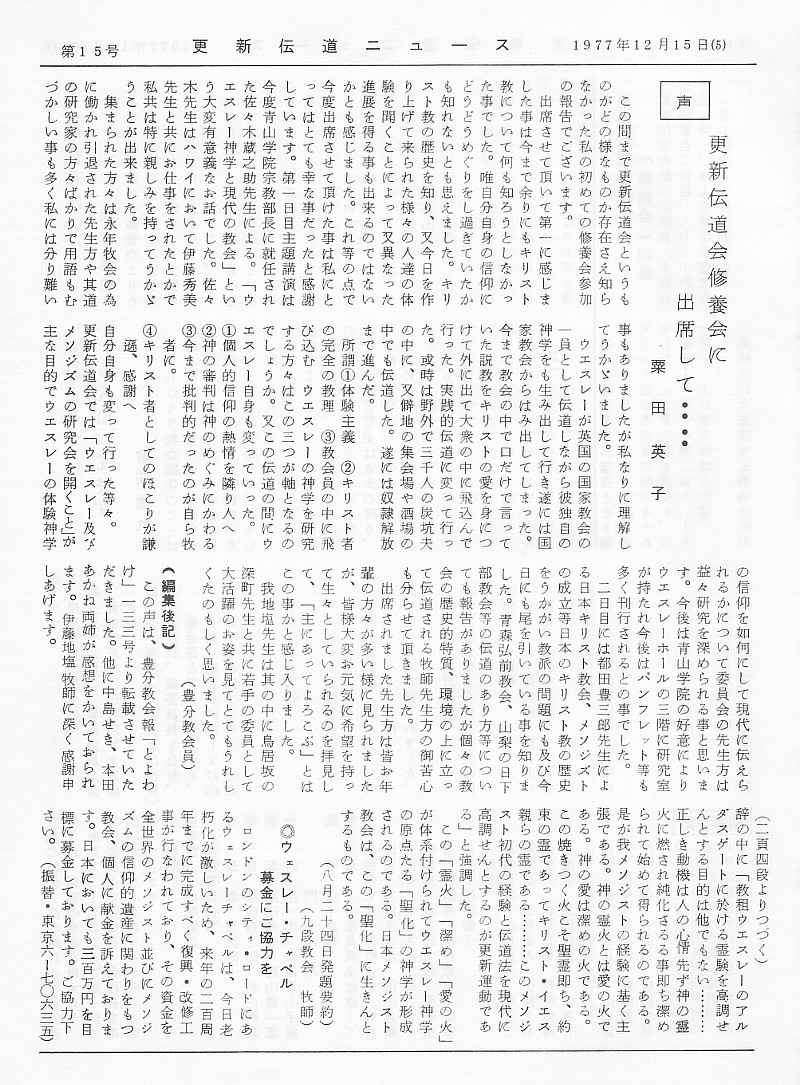 第15号
更新伝道ニュース
1977年12月15日(5)
声
更新伝道会修養会に
出席して・・・・
粟田英子
この間まで更新伝道会というも
のがどの様なものか存在さえ知ら
なかった私の初めての修養会参加
の報告でございます。
出席させて頂いて第一に感じま
した事は今まで余りにもキリスト
教について何も知ろうとしなかっ
た事でした。唯自分自身の信仰に
どうどうめぐりをし過ぎていたか
も知れないとも思えました。キリ
スト教の歴史を知り、又今日を作
り上げて来られた様々の人達の体
験を聞くことによって又異なった
進展を得る事も出来るのではない
かとも感じました。これ等の点で
今度出席させて頂けた事は私にと
ってはとても幸な事だったと感謝
しています。第一日目主題講演は
今度青山学院宗教部長に就任され
た佐々木蔵之助先生による。「ウ
エスレー神学と現代の教会」とい
う大変有意義なお話でした。佐々
木先生はハワイにおいて伊藤秀美
先生と共にお仕事をされたとかで
私共は特に親しみを持ってうかゞ
うことが出来ました。
集まられた方々は永年牧会の為
に働かれ引退された先生方や其道
の研究家の方々ばかりで用語もむ
づかしい事も多く私には分り難い
事もありましたが私なりに理解し
てうかゞいました。
ウエスレーが英国の国家教会の
一員として伝道しながら彼独自の
神学をも生み出して行き遂には国
家教会からはみ出してしまった。
今まで教会の中で口だけで言って
いた説教をキリストの愛を身につ
けて外に出て大衆の中に飛込んで
行った。実践的伝道に変って行っ
た。或時は野外で三千人の炭坑夫
の中に、又僻地の集会場や酒場の
中でも伝道した。遂には奴隷解放
まで進んだ。
所謂①体験主義 ②キリスト者
の完全の教理 ③教会員の中に飛
び込む ウエスレーの神学を研究
する方々はこの三つが軸となるの
でしょうか。又この伝道の間にウ
エスレー自身も変っていった。
①個人的信仰の熱情を隣り人へ
②神の審判は神のめぐみにかわる
③今まで批判的だったのが自ら牧
者に。
④キリスト者としてのほこりが謙
遜、感謝へ
自分自身も変って行った等々。
更新伝道会では「ウエスレー及び
メソジズムの研究会を開くこと」が
主な目的でウエスレーの体験神学
の信仰を如何にして現代に伝えら
れるかについて委員会の先生方は
益々研究を深められる事と思いま
す。今後は青山学院の好意により
ウエスレーホールの三階に研究室
が持たれ今後はパンフレット等も
多く刊行されるとの事でした。
二日目には都田豊三郎先生によ
る日本キリスト教会、メソジスト
の成立等日本のキリスト教の歴史
をうかがい教派の問題にも及び今
日にも尾を引いている事を知りま
した。青森弘前教会、山梨の日下
部教会等の伝道のあり方等につい
ても報告がありましたが個々の教
会の歴史的特質、環境の上に立っ
て伝道される牧師先生方の御苦心
も分らせて頂きました。
出席されました先生方は皆お年
輩の方々が多い様に見られました
が、皆様大変お元気に希望を持っ
て生々としていられるのを拝見し
て、「主にあってよろこぶ」とは
この事かと感じ入りました。
我地塩先生は其の中に鳥居坂の
深町先生と共に若手の委員として
大活躍のお姿を見てとてもうれし
くたのもしく思いました。
(豊分教会員)
(編集後記)
この声は、豊分教会報「とよわ
け」一三三号より転載させていた
だきました。他に中島せき、本田
あかね両姉が感想をかいておられ
ます。伊藤地塩牧師に深く感謝申
しあげます。
(二頁四段よりつづく)
辞の中に「教祖ウエスレーのアル
ダスゲートに於ける霊験を高調せ
んとする目的は他でもない………
正しき動機は人の心情先ず神の霊
火に燃され純化さるる事即ち潔め
られて始めて得られるのである。
是が我メソジストの経験に基く主
張である。神の霊火とは愛の火で
ある。神の愛は潔めの火である。
この焼きつく火こそ聖霊即ち、約
束の霊であってキリスト・イエス
親らの霊である………このメソジ
スト初代の経験と伝道法を現代に
高調せんとするのが更新運動であ
る」と強調した。
この「霊火」「潔め」「愛の火」
が体系付けられてウエスレー神学
の原点たる「聖化」の神学が形成
されるのである。日本メソジスト
教会は、この「聖化」に生きんと
するものである。
(八月二十四日発題要約)
(九段教会 牧師)
◎ウェスレー・チャペル
募金にご協力を
ロンドンのシティ・ロードにあ
るウェスレーチャペルは、今日老
朽化が激しいため、来年の二百周
年までに完成すべく復興・改修工
事が行なわれており、その資金を
全世界のメソジスト並びにメソジ
ズムの信仰的遺産に関わりをもつ
教会、個人に献金を訴えておりま
す。日本においても三百万円を目
標に募金しております。ご協力下
さい。(振替・東京六ー七〇六三五)